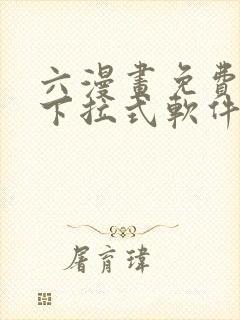 六漫畫免費
下拉式軟件
屠育瑋